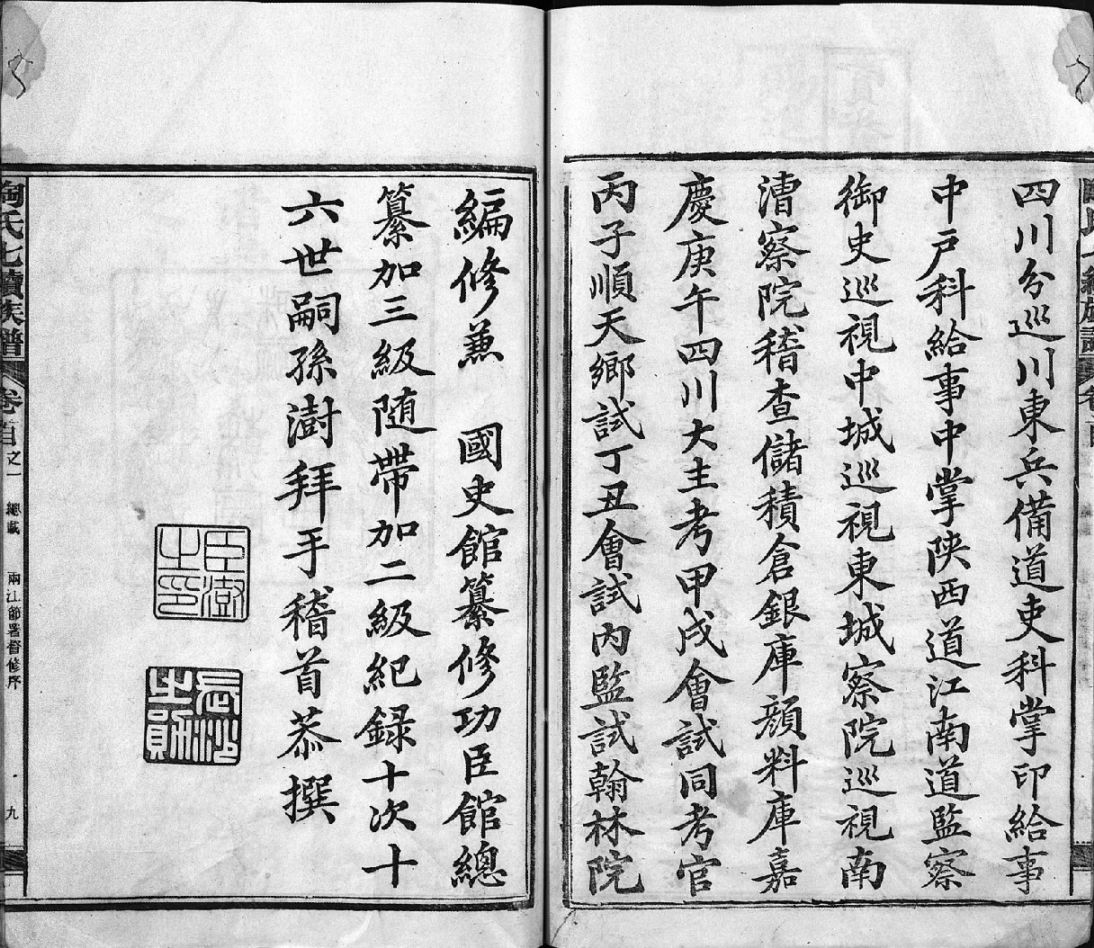 四川分巡川東兵備道吏科掌印給事
中戶科給事中掌陝西道江南道監察
御史巡視中城巡視東城察院巡視南
漕察院稽查儲積倉銀庫顏料庫嘉
慶庚午四川大主考甲戌會試同考官
丙子順天鄉試丁丑會試內監試翰林院
編修兼 國史館纂修功臣館總
纂加三級随帶加二級紀録十次十
六世嗣孫澍拜手稽首恭撰
臣澍之印
陶氏七續族譜 卷首之一 總載 兩江節署督修序 九